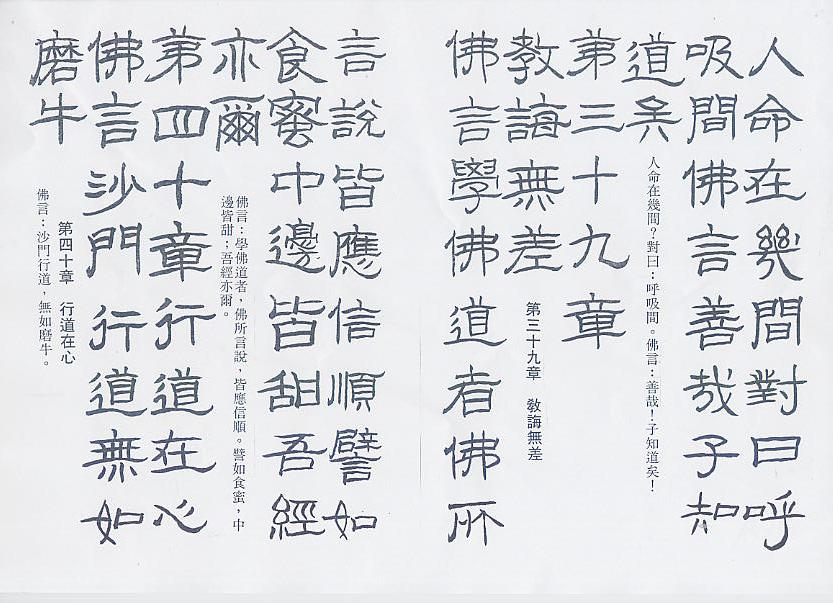 人命在幾間對曰呼
吸間佛言善哉子知
道矣
人命在幾間？對曰：呼吸間。佛言：善哉！子知道矣！
第三十九章
教誨無差
第三十九章　教誨無差
佛言學佛道者佛所
言說皆應信順譬如
食蜜中邊皆甜吾經
亦爾
佛言：學佛道者，佛所言說，皆應信順。譬如食蜜，中
邊皆甜；吾經亦爾。
第四十章行道在心
佛言沙門行道無如
磨牛
第四十章　行道在心
佛言：沙門行道，無如磨牛。